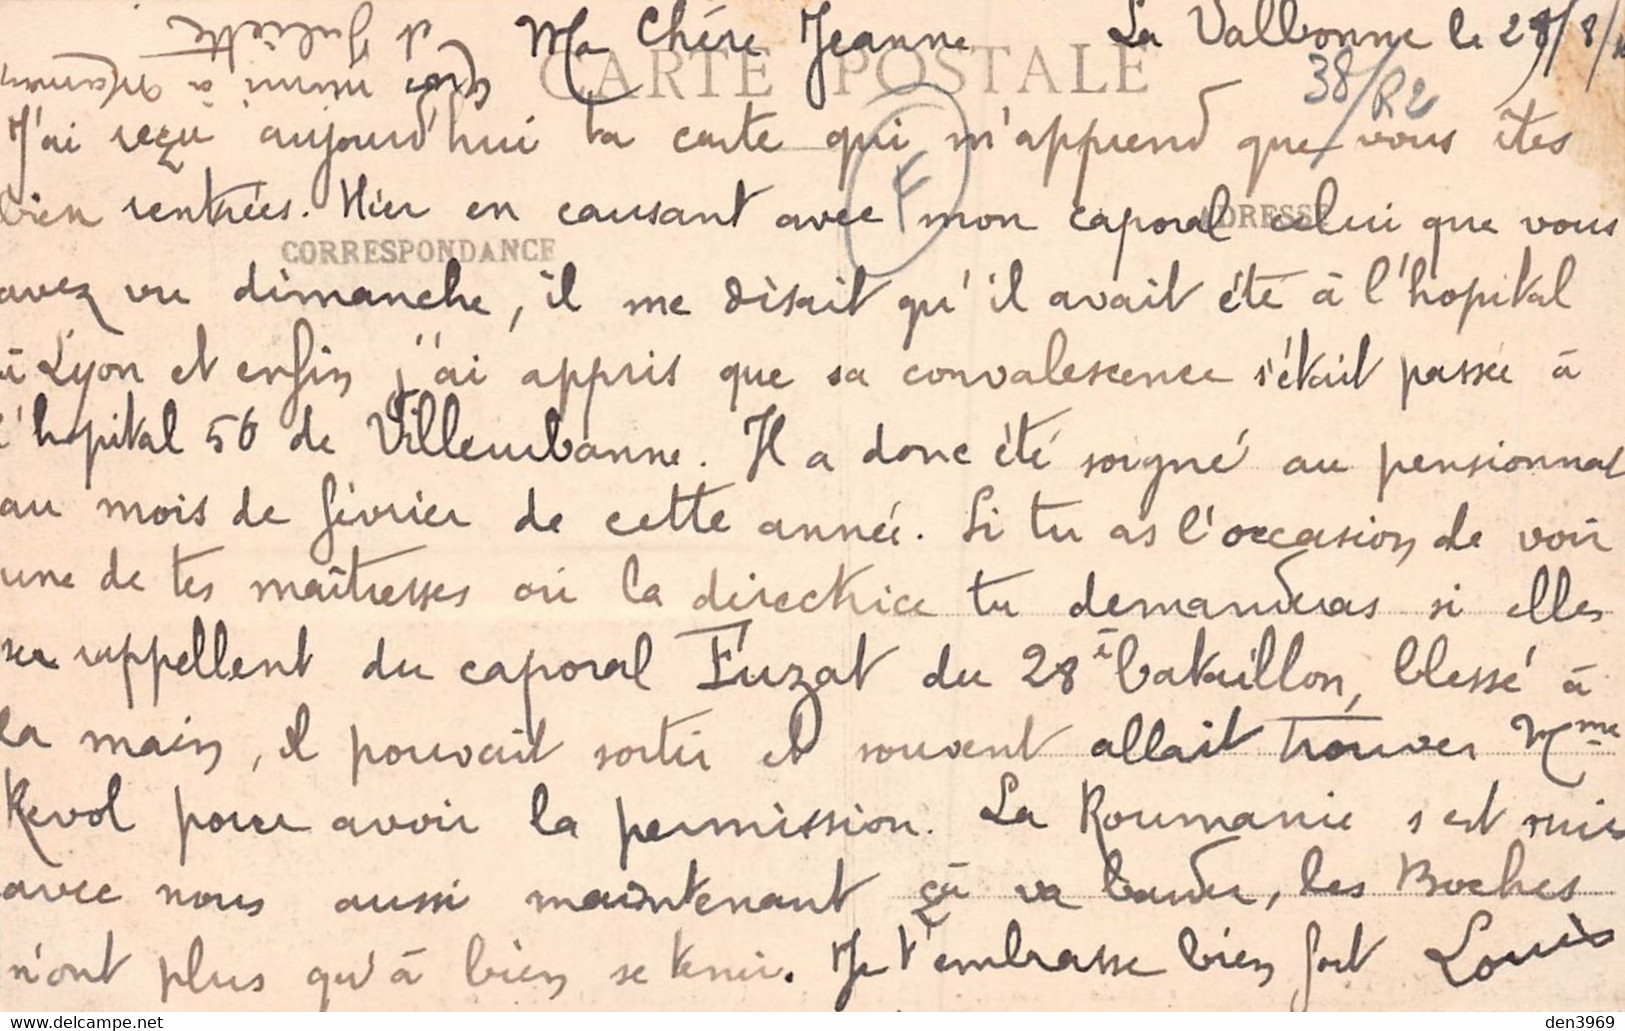 Ma Chère Jeanne La Valbonne le 29/8/16
CARTE POSTALE
38/R2
F
J'ai reçu aujourd'hui ta carte qui m'apprend que vous êtes
bien rentrées. Hier en causant avec mon caporal celui que vous
ADRESSE
CORRESPONDANCE
avez vu dimanche, il me disait qu'il avait été à l'hopital
à Lyon et enfin j'ai appris que sa convalescence s'était passée à
l'hopital 56 de Villeurbanne. Il a donc été soigné au pensionnat
au mois de février de cette année. Si tu as l'occasion de voir
une de tes maîtresses ou la directrice tu demanderas si elles
se rappellent du caporal Fuzat du 28e bataillon, blessé à
la main, il pouvait sortir et souvent allait trouver Mme
Revol pour avoir la permission. La Roumanie s'est mise
avec nous aussi maintenant ça va barder, les Boches
n'ont plus qu'à bien se tenir. Je t'embrasse bien fort Louis
Gros mimi à Maman
et Juliette
den3969